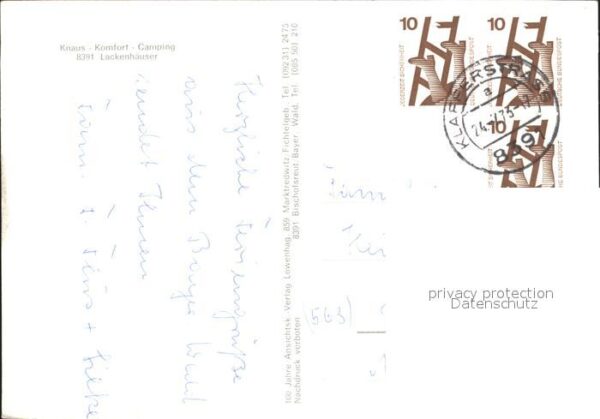 Knaus - Komfort - Camping
8391 Lackenhäuser
Herzliche Feriengrüße
aus dem Bayr. Wald
sendet Ihnen
Fam.
100 Jahre Ansichtsk. Verlag Lowenhag. 859 Marktredwitz Fichtelgeb. Tel. (09231) 2475
8391 Bischofsreut. Bayer. Wald. Tel. (085 50) 210
Nachdruck verboten
10
10
10
JEDERZEIT SICHERHEIT
DEUTSCHE BUNDESPOST
KLAFFERSTRASS
a
8391
Fam
(563)
privacy protection
Datenschutz